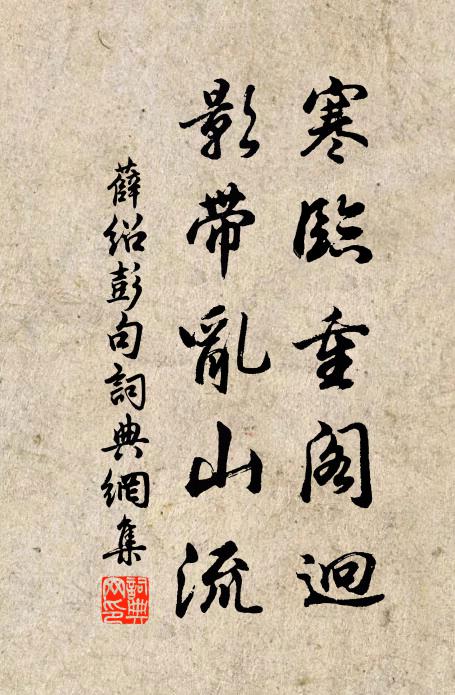 寒臨重閣迥
影帶亂山流
薛紹彭句詞典網集
詞典網印